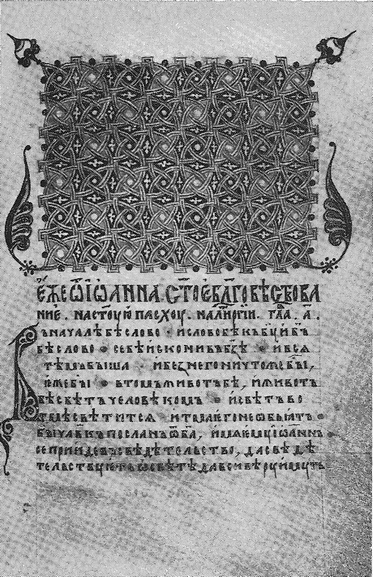 Е҆ЖЕ Ѿ ІѠАННА. СТ҃ОЕ БЛ҃ГОВѢСТВОВА
НИЕ. НАСТ҃ОУЮ ПАСХОУ. НАЛИРГІИ. ГЛА. А҃.
ВНАЧАЛѢ БѢ СЛОВО · И СЛОВО БѢ КЪ БЦ҃И Б҃Ъ
БѢ СЛОВО · СЕ БѢ ИСКОНИ ВЪ БЗ҃Ѣ · И ВСꙖ
ТѢМЪ БЫША · И БЕЗ НЕГО НИЧТОЖЕ БЫ,
ЕЖЕ БЫ · В ТОМЪ ЖИВОТЪ БѢ, И ЖИВОТЪ
БѢ СВѢТЪ ЧЕЛОВѢКОМЪ · И СВѢТЪ ВО
ТМѢ СВѢТИТСЯ · И ТМА ЕГО НЕ ѠБЬꙖТЪ ·
БЫ ЧЛ҃ВКЪ ПОСЛАНЪ Ѿ Б҃А, ИМѦ ЕМꙊ ІѠАННЪ
СЕ ПРИИДЕ В СВѢДѢТЕЛЬСТВО, ДА СВѢДѢ
ТЕЛЬСТВꙊЕТЪ Ѡ СВѢТѢ ДА ВСИ ВѢРꙊ ИМꙊТЪ